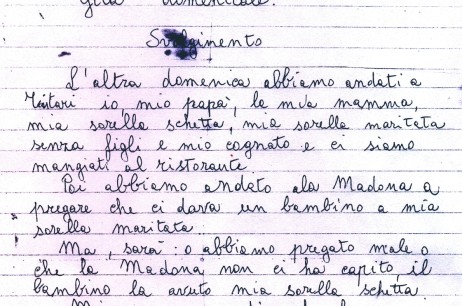 gita domenicale.
Svolgimento
L'altra domenica abbiamo andati a
io, mio papà, la mia mamma,
mia sorella schetta, mia sorella maritata
senza figli e mio cognato e ci siamo
mangiati al ristorante.
Poi abbiamo andato ala Madona a
pregare che ci dava un bambino a mia
sorella maritata.
Ma, sarà o abbiamo pregato male o
che la Madona non ci ha capito, il
bambino la avuto mia sorella schetta.